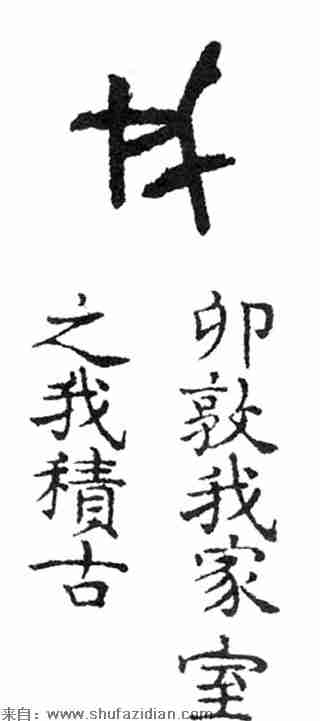 我
卯敦我家室
之我積古
来自：www.shufazidian.com